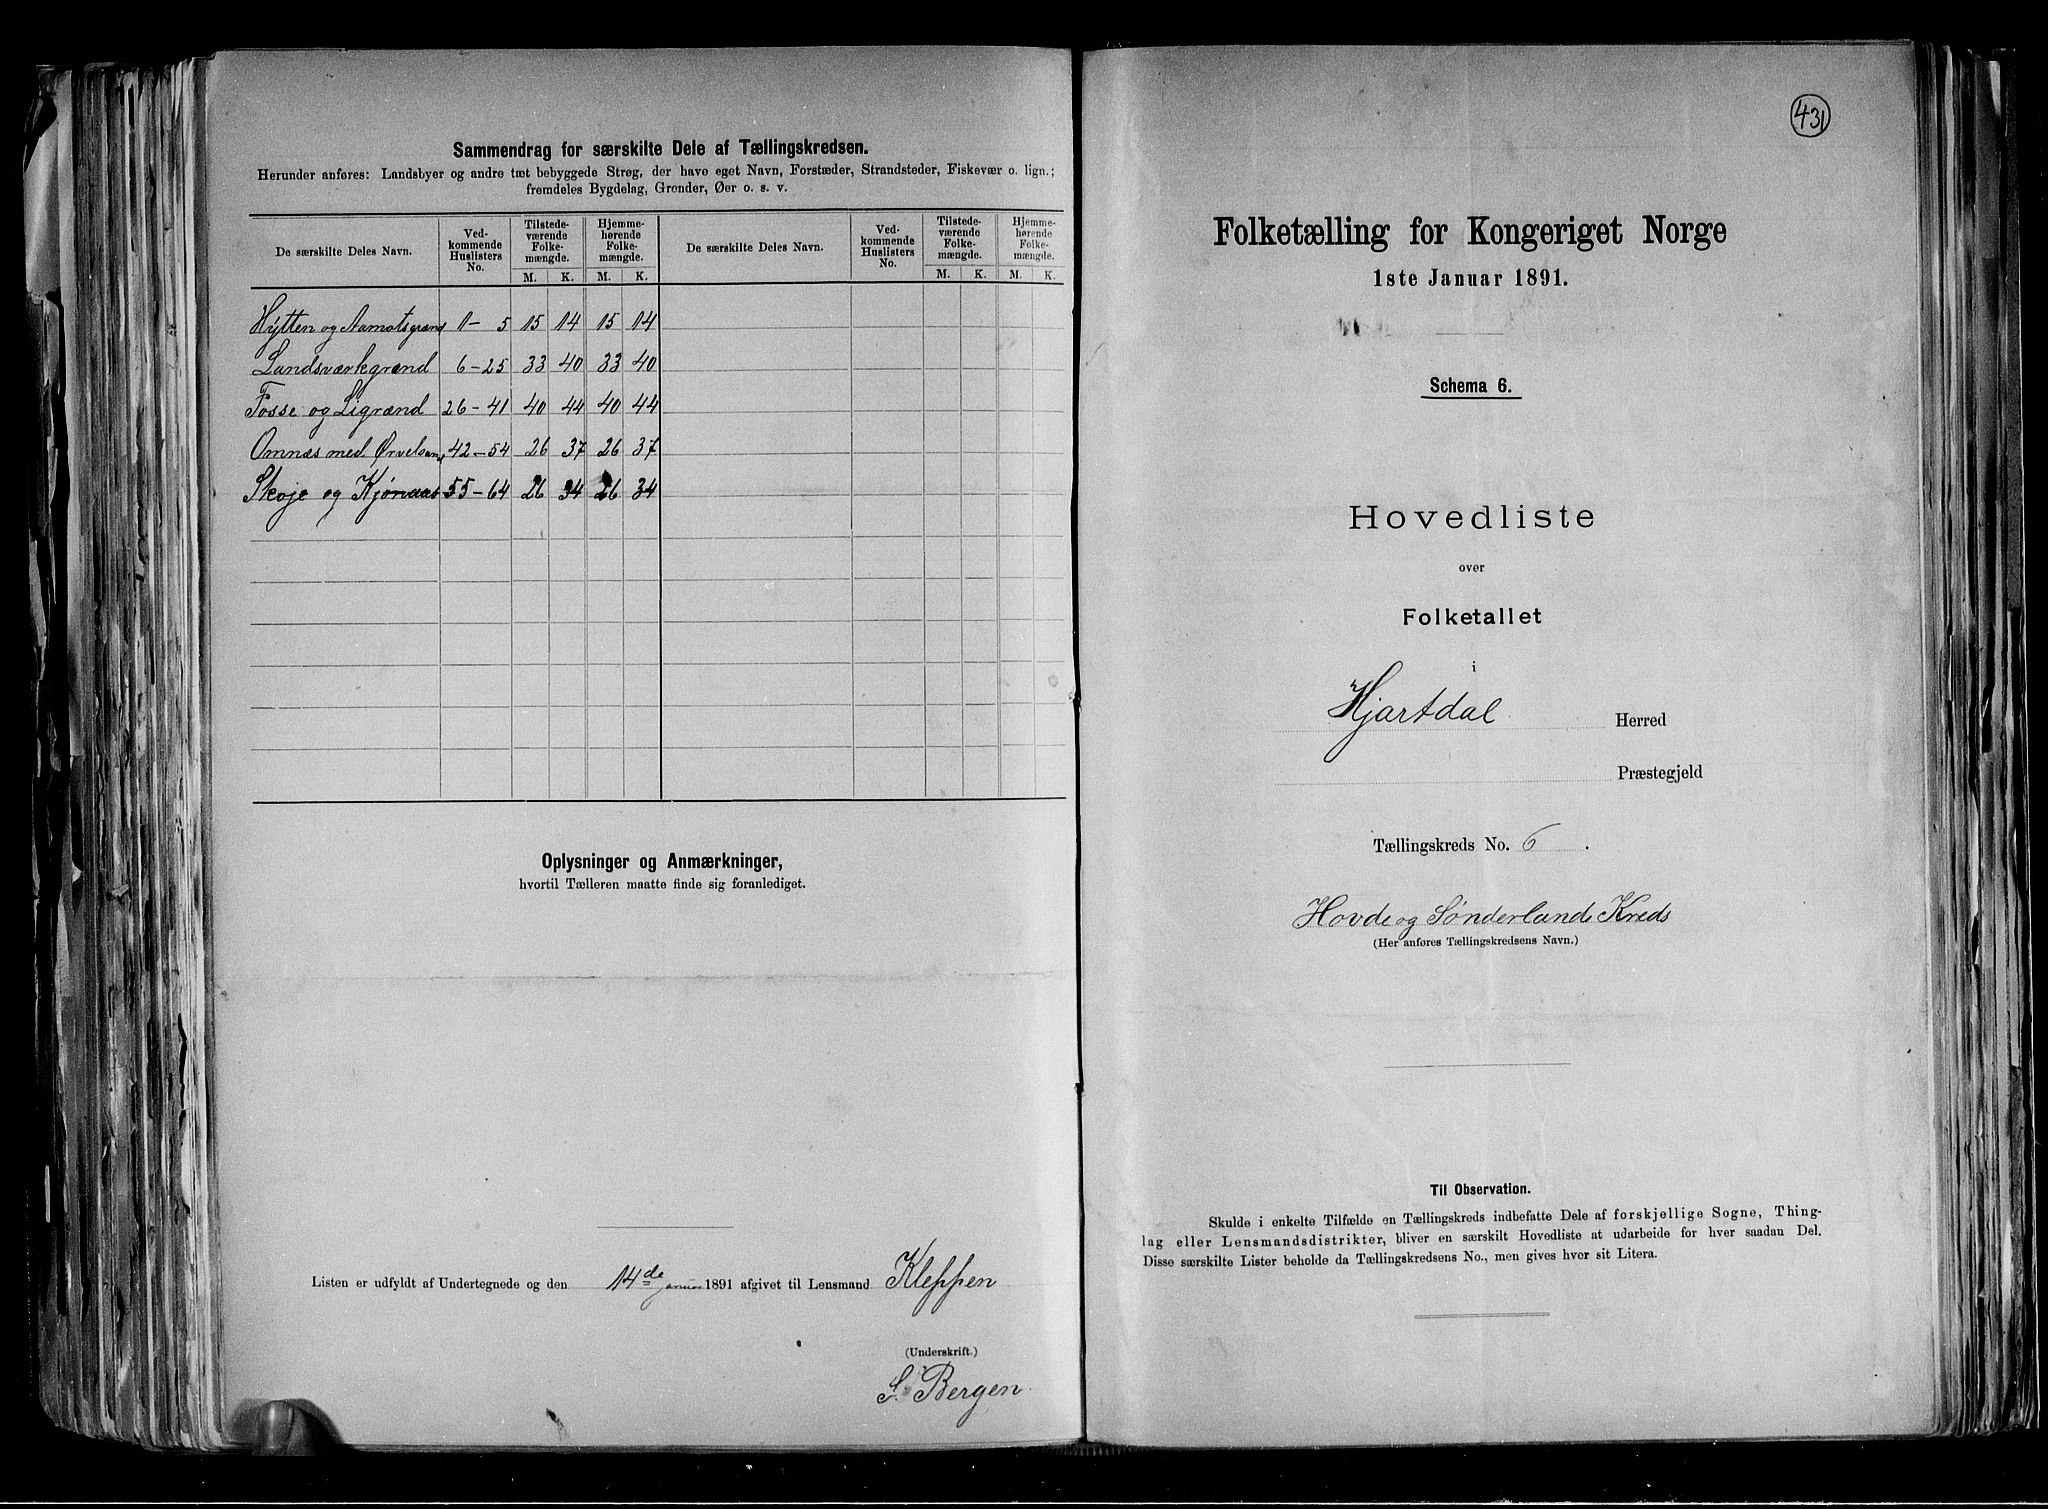 Sammendrag for særskilte Dele af Tællingskredsen.
Herunder anføres: Landsbyer og andre tæt bebyggede Strøg, der have eget Navn, Forstæder, Strandsteder, Fiskevær o. lign.;
fremdeles Bygdelag, Grender, Øer o. s. v.
De særskilte Deles Navn. Ved-kommende Huslisters No. Tilstede-værende Folke-mængde. Hjemme-hørende Folke-mængde. De særskilte Deles Navn. Ved-kommende Huslisters No. Tilstede-værende Folke-mængde. Hjemme-hørende Folke-mængde.
M. K. M. K. M. K. M. K.
Hytten og Aamotsgrænd 1 - 5 15 14 15 14
Landsværkgrænd 6 - 25 33 40 33 40
Fosse og Ligrænd 26 - 41 40 44 40 44
Omnæs med 42 - 54 26 37 26 37
Skoje og Kjønaas 55 - 64 26 34 26 34
Oplysninger og Anmærkninger,
hvortil Tælleren maatte finde sig foranlediget.
Listen er udfyldt af Undertegnede og den 14de januar 1891 afgivet til Lensmand Kleppen
(Underskrift.)
S. Bergen
431
Folketælling for Kongeriget Norge
1ste Januar 1891.
Schema 6.
Hovedliste
over
Folketallet
i
Hjartdal Herred
Præstegjeld
Tællingskreds No. 6 .
Hovde og Sønderlands Kreds
(Her anføres Tællingskredsens Navn.)
Til Observation.
Skulde i enkelte Tilfælde en Tællingskreds indbefatte Dele af forskjellige Sogne, Thing-
lag eller Lensmandsdistrikter, bliver en særskilt Hovedliste at udarbeide for hver saadan Del.
Disse særskilte Lister beholde da Tællingskredsens No., men gives hver sit Litera.